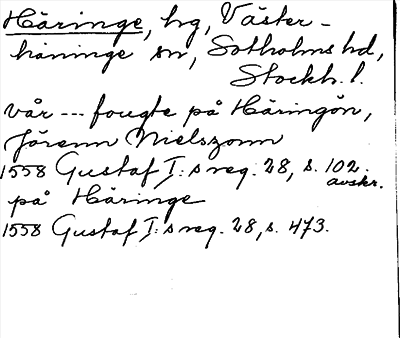 Häringe, hg, Väster-
haninge sn, Sotholms hd,
Stockh. l.
vår --- fougte på Häringön,
Jörenn Nielszonn
1558 Gustaf I:s reg. 28, s. 102.
avskr.
på Häringe
1558 Gustaf I:s reg. 28, s. 473.